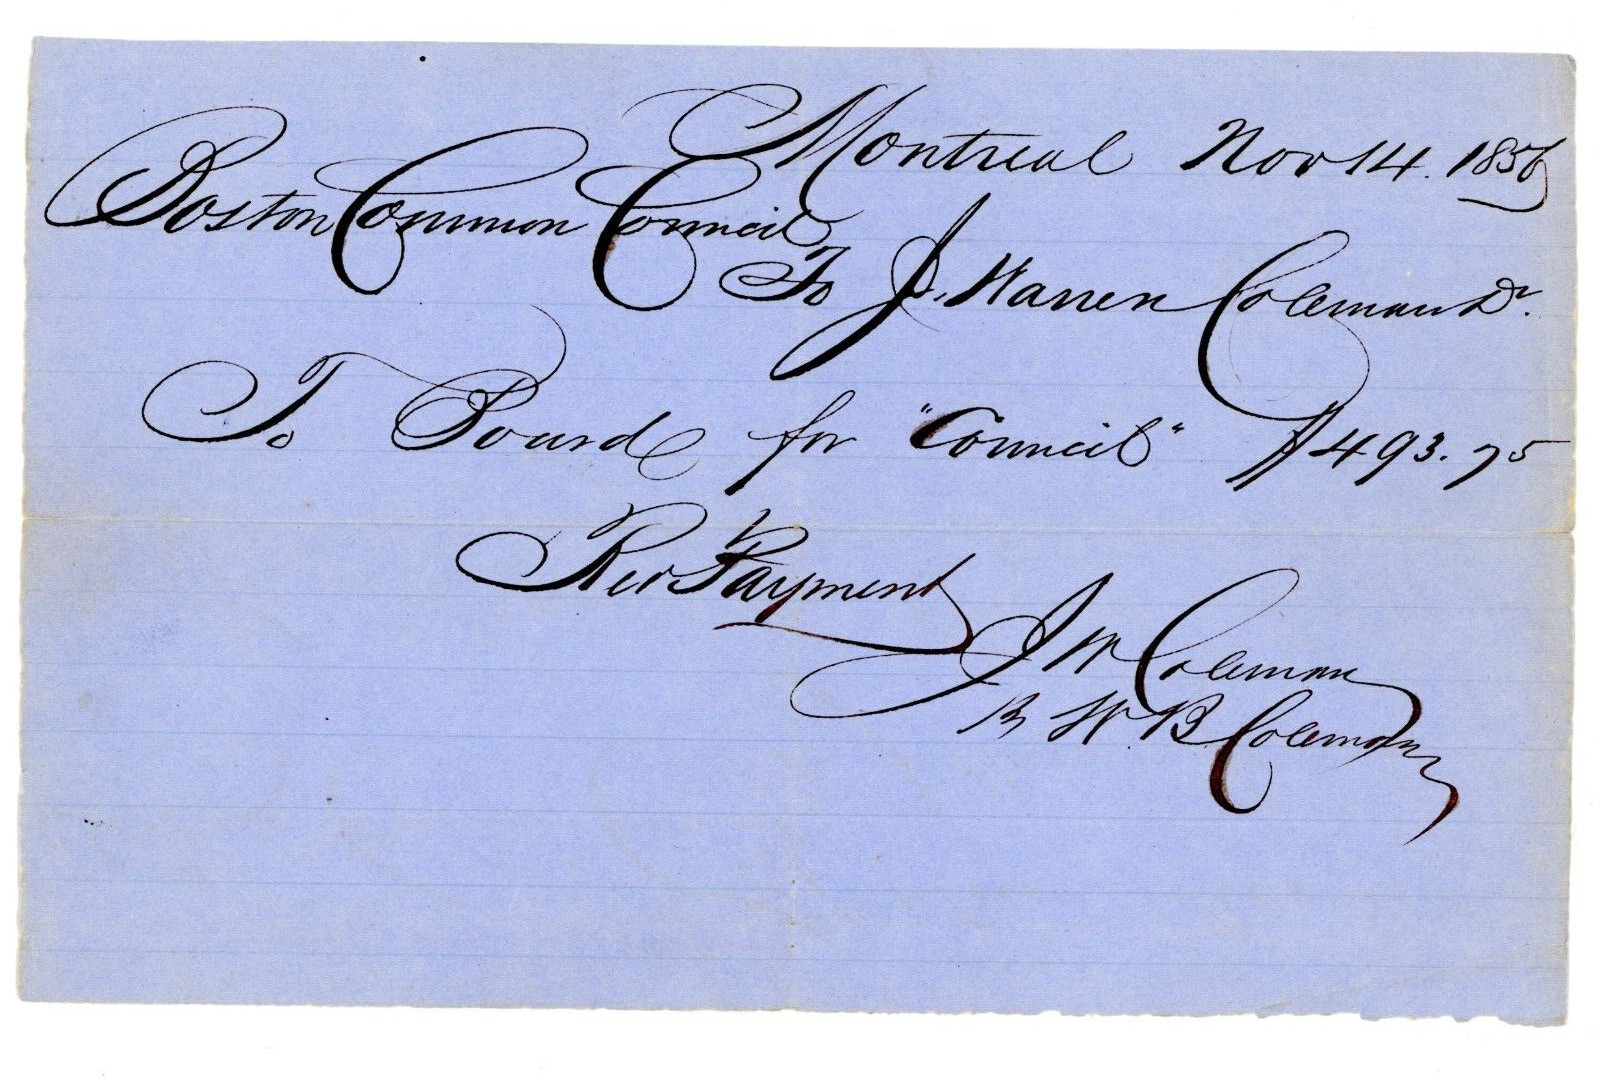 Montreal Nov 14. 1856
Boston Common Council
To J. Warren Coleman Dr.
To Board for "Council" $493.75
Rec Payment
J W Coleman
W. B Coleman